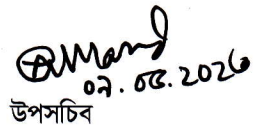 ০৭.০৫.২০২৬
উপসচিব